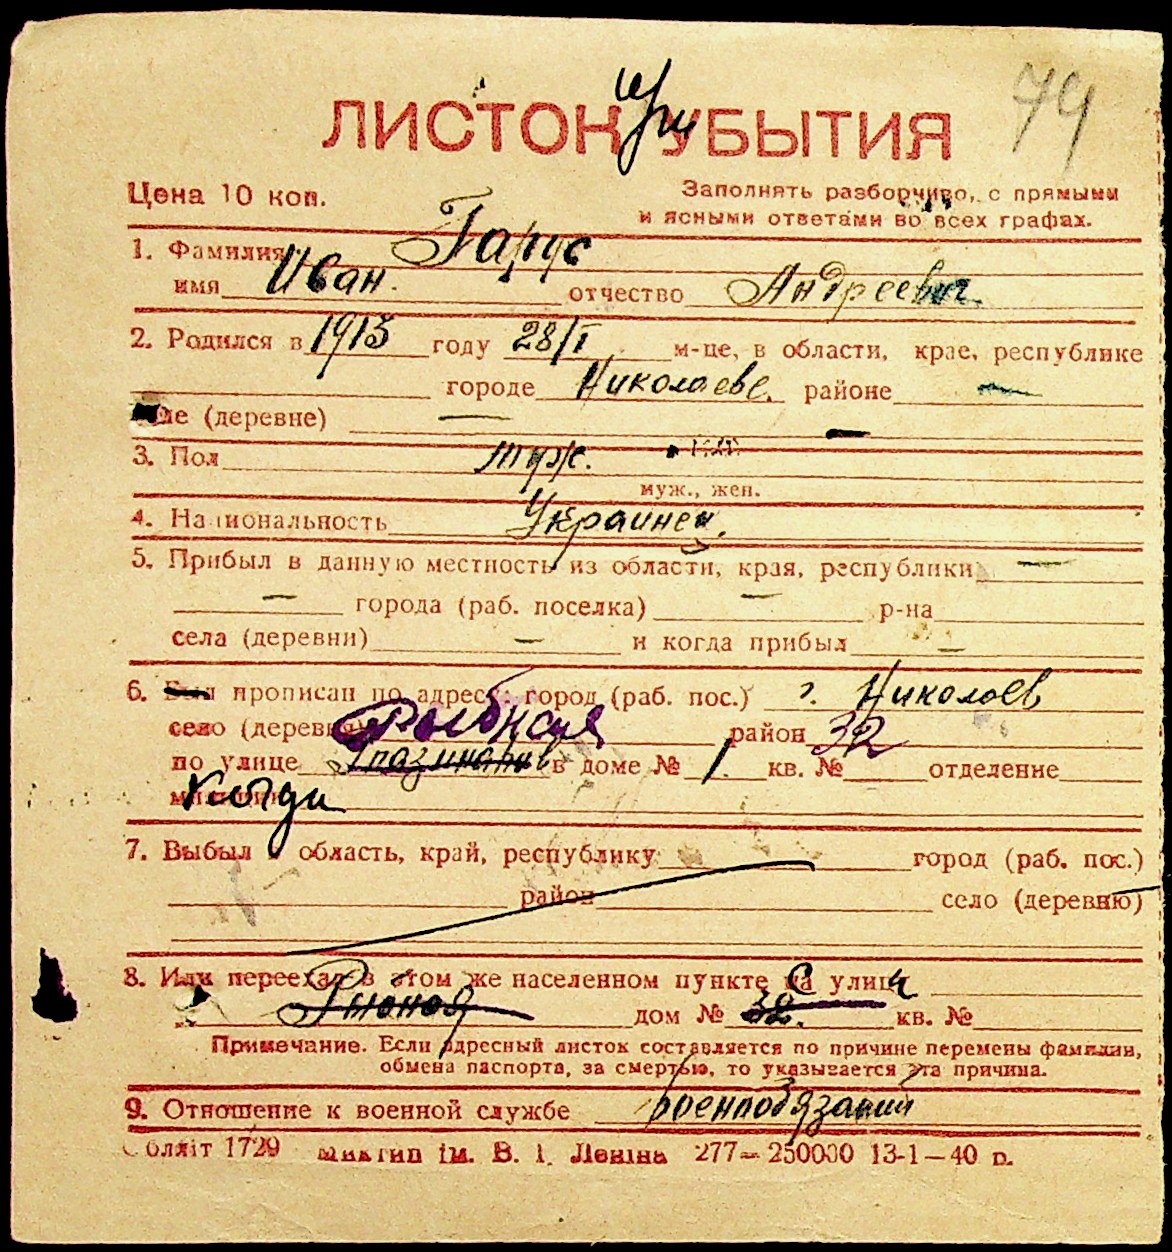 79
ЛИСТОК УБЫТИЯ
при
Цена 10 коп.
Заполнять разборчиво, с прямыми
и ясными ответами во всех графах.
1. Фамилия Гарус
имя Иван. отчество Андреевич
2. Родился в 1913 году 28/I м-це, в области, крае, республике
городе Николаеве. районе —
ле (деревне) — —
3. Пол муж.
муж., жен.
4. Национальность Украинец.
5. Прибыл в данную местность из области, края, республики —
— города (раб. поселка) — р-на
села (деревни) — и когда прибыл —
6. Был прописан по адресу: город (раб. пос.) г. Николаев
село (деревня) Рыбная район 32
по улице в доме № 1. кв. № отделение
милиции
7. Выбыл в область, край, республику город (раб. пос.)
район село (деревню)
8. Или переехал в этом же населенном пункте с улицы
Рыбной дом № 32. кв. №
Примечание. Если адресный листок составляется по причине перемены фамилии,
обмена паспорта, за смертью, то указывается эта причина.
9. Отношение к военной службе Военнообязаный
Обліт 1729 ім. В. І. Леніна 277—250000 13-1—40 р.